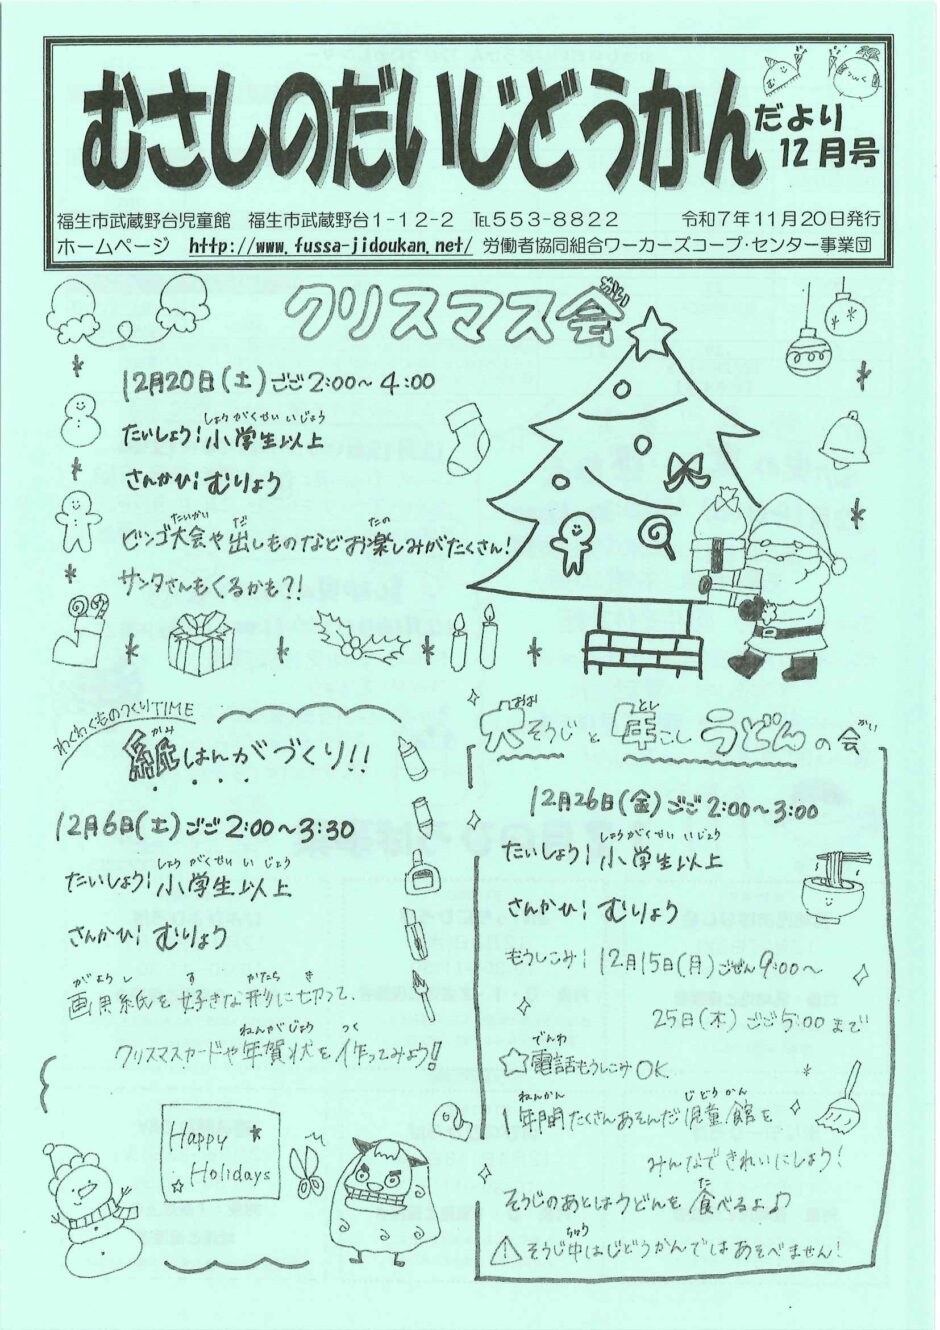 むさしのだいじどうかん
だより
12月号
福生市武蔵野台児童館　福生市武蔵野台1-12-2　℡553-8822　令和7年11月20日発行
ホームページ　http://www.fussa-jidoukan.net/　労働者協同組合ワーカーズコープ・センター事業団
クリスマス会
かい
12月20日(土)ごご2:00～4:00
しょうがくせいいじょう
たいしょう¦小学生以上
さんかひ¦むりょう
たいかい　だ　たの
ビンゴ大会や出しものなどお楽しみがたくさん!
サンタさんもくるかも?!
わくわくものづくりTIME
かみ
紙はんがづくり!!
12月6日(土)ごご2:00～3:30
しょうがくせいいじょう
たいしょう¦小学生以上
さんかひ¦むりょう
がようし　す　かたち　き
画用紙を好きな形に切って、
ねんがじょう　つく
クリスマスカードや年賀状を作ってみよう!!
Happy
Holidays
おお　とし　かい
大そうじと年こしうどんの会
12月26日(金)ごご2:00～3:00
しょうがくせいいじょう
たいしょう¦小学生以上
さんかひ¦むりょう
もうしこみ¦12月15日(月)ごぜん9:00～
25日(木)ごご5:00まで
でんわ
☆電話もうしこみOK
ねんかん　じどうかん
1年間たくさんあそんだ児童館を
みんなできれいにしよう!
た
そうじのあとはうどんを食べるよ♪
ちゅう
⚠そうじ中はじどうかんではあそべません!